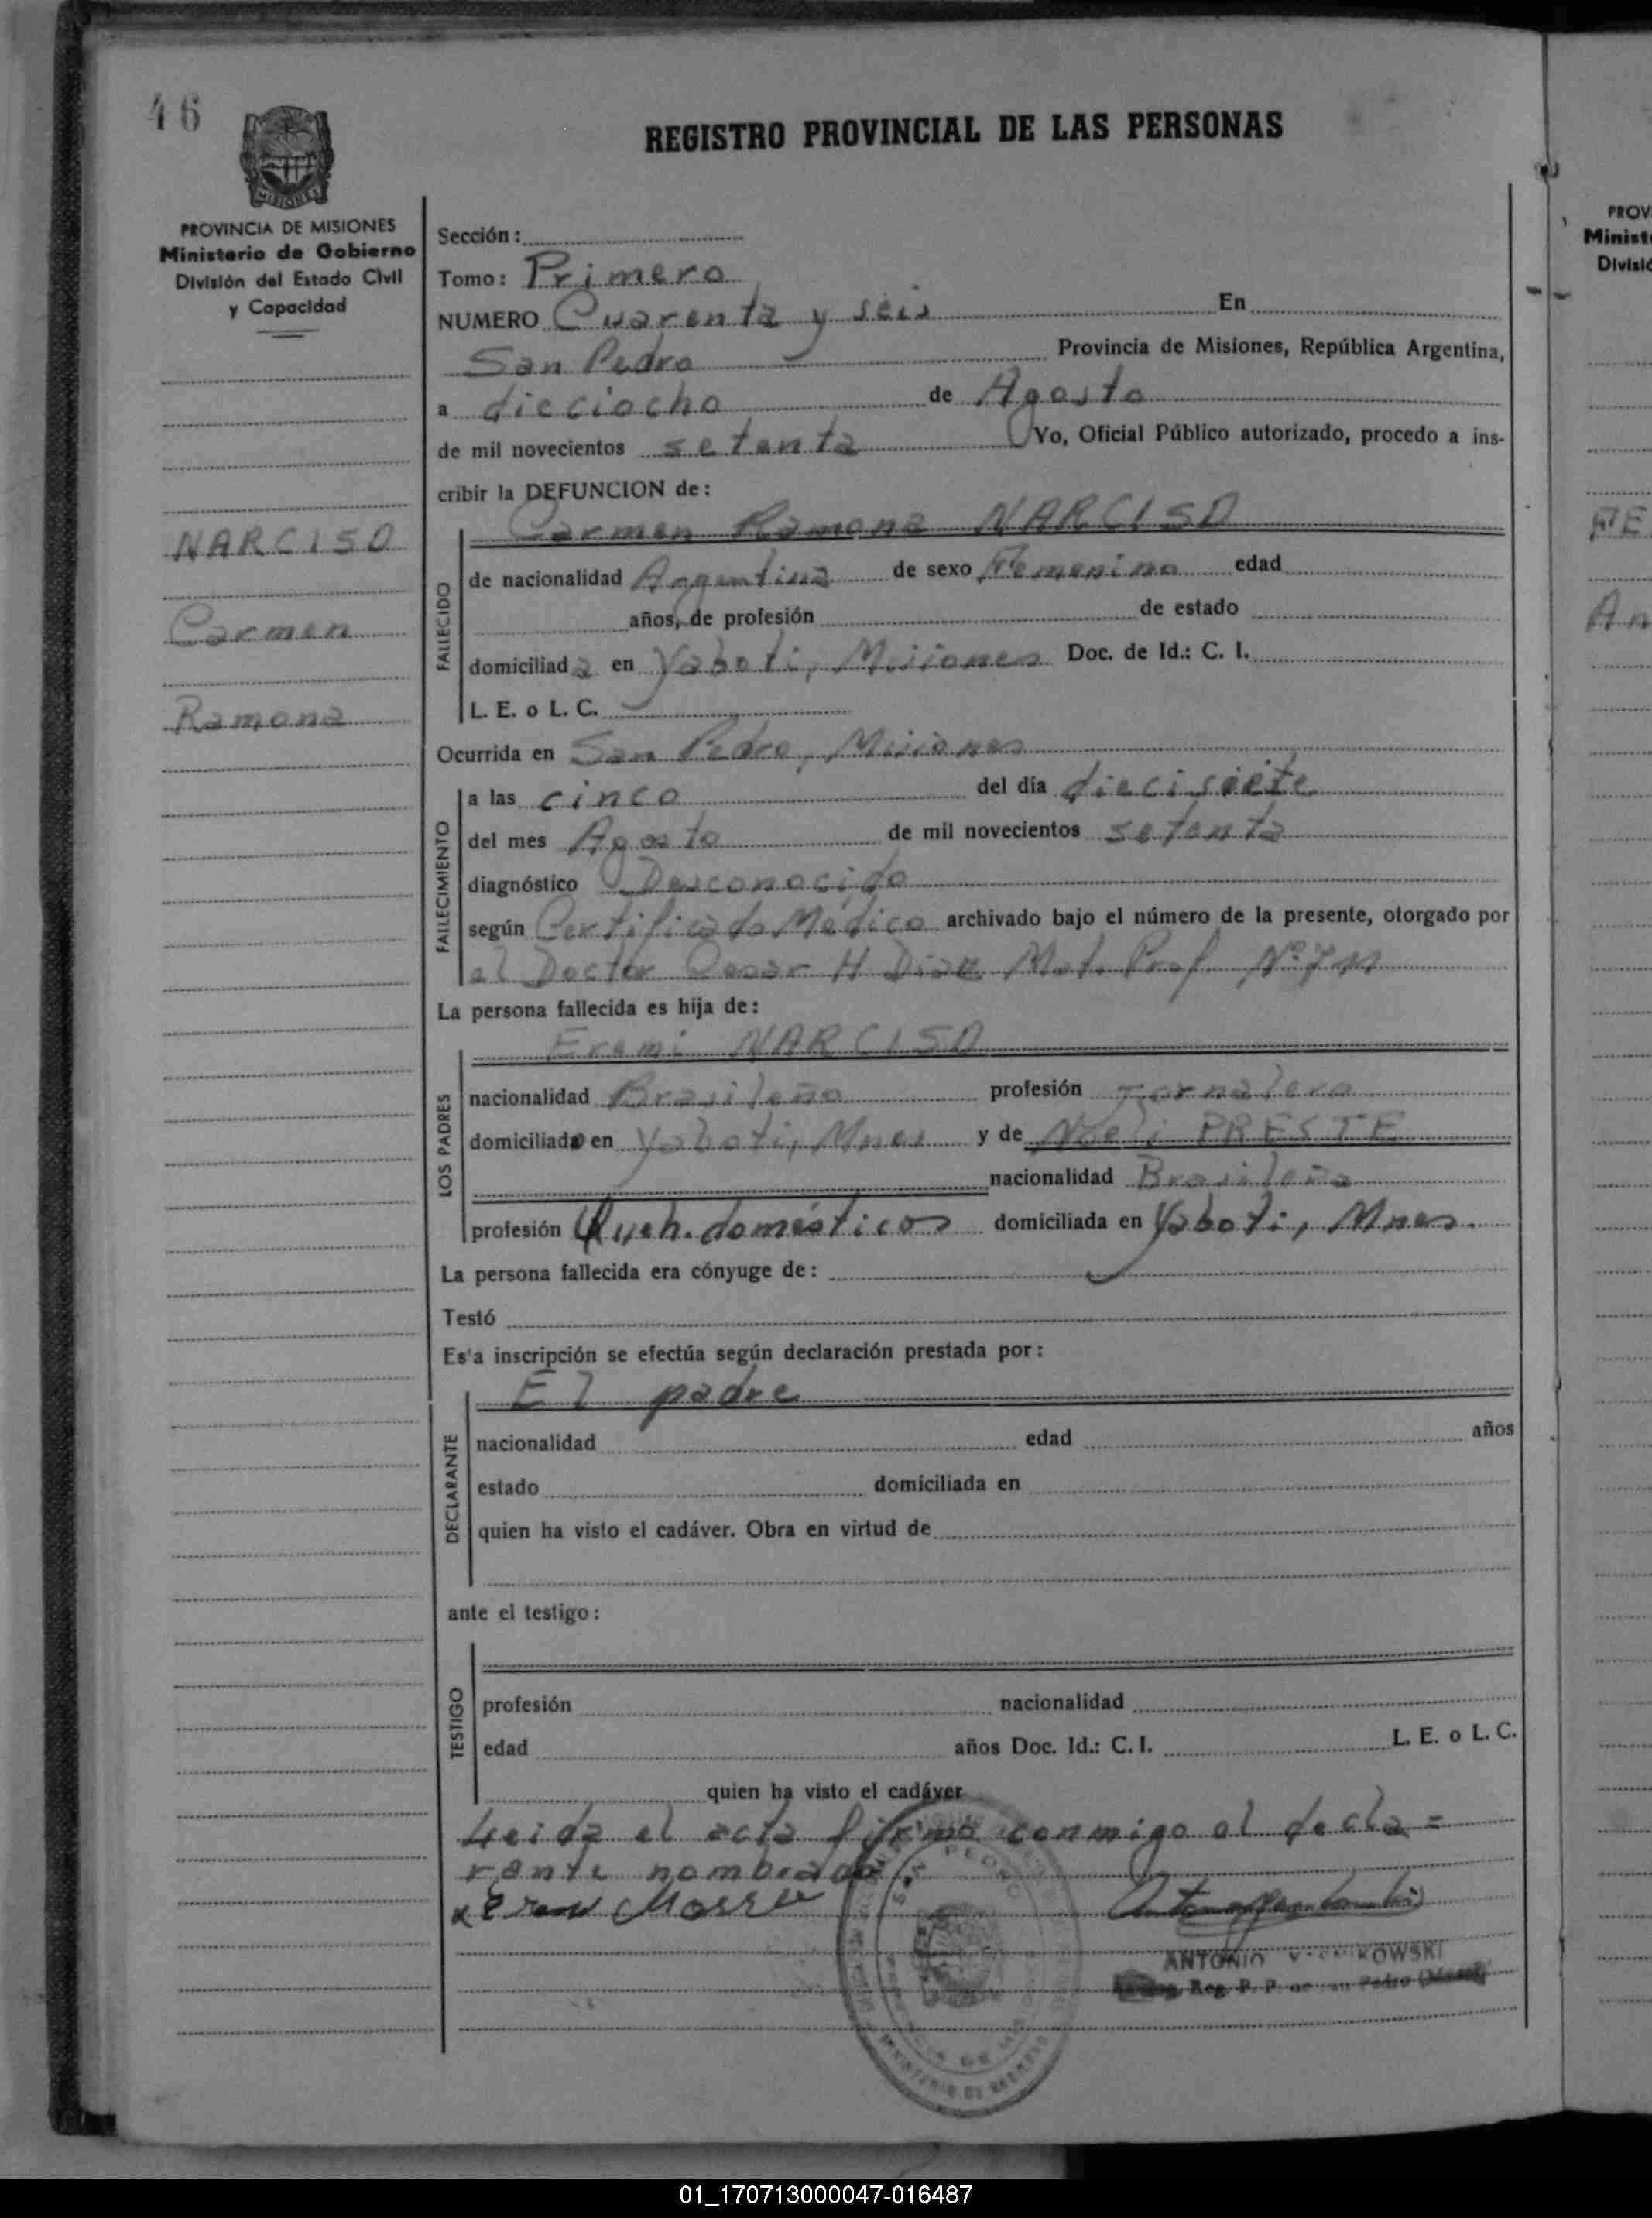 46
REGISTRO PROVINCIAL DE LAS PERSONAS
MISIONES
PROVINCIA DE MISIONES
Ministerio de Gobierno
División del Estado Civil
y Capacidad
NARCISO
Carmen
Ramona
Sección:
Tomo: Primero
NUMERO Cuarenta y seis En
San Pedro Provincia de Misiones, República Argentina,
a dieciocho de Agosto
de mil novecientos setenta Yo, Oficial Público autorizado, procedo a ins-
cribir la DEFUNCION de:
Carmen Ramona NARCISO
FALLECIDO
de nacionalidad Argentina de sexo Femenino edad
años, de profesión de estado
domiciliada en Yaboti, Misiones Doc. de Id.: C. I.
L. E. o L. C.
Ocurrida en San Pedro, Misiones
FALLECIMIENTO
a las cinco del día diecisiete
del mes Agosto de mil novecientos setenta
diagnóstico Desconocido
según Certificado Médico archivado bajo el número de la presente, otorgado por
el Doctor Cesar H Diaz Mat. Prof. Nº 711
La persona fallecida es hija de:
Eremi NARCISO
LOS PADRES
nacionalidad Brasileño profesión Jornalero
domiciliado en Yaboti, Mnes y de Noeli PRESTE
nacionalidad Brasileña
profesión Queh. domésticos domiciliada en Yaboti, Mnes.
La persona fallecida era cónyuge de:
Testó
Es'a inscripción se efectúa según declaración prestada por:
El padre
DECLARANTE
nacionalidad edad años
estado domiciliada en
quien ha visto el cadáver. Obra en virtud de
ante el testigo:
TESTIGO
profesión nacionalidad
edad años Doc. Id.: C. I. L. E. o L. C.
quien ha visto el cadáver
Leida el acta firma conmigo el decla=
rante nombrado
ANTONIO
Reg. P. P. San Pedro
PROV
Ministe
Divisió
An
01_170713000047-016487